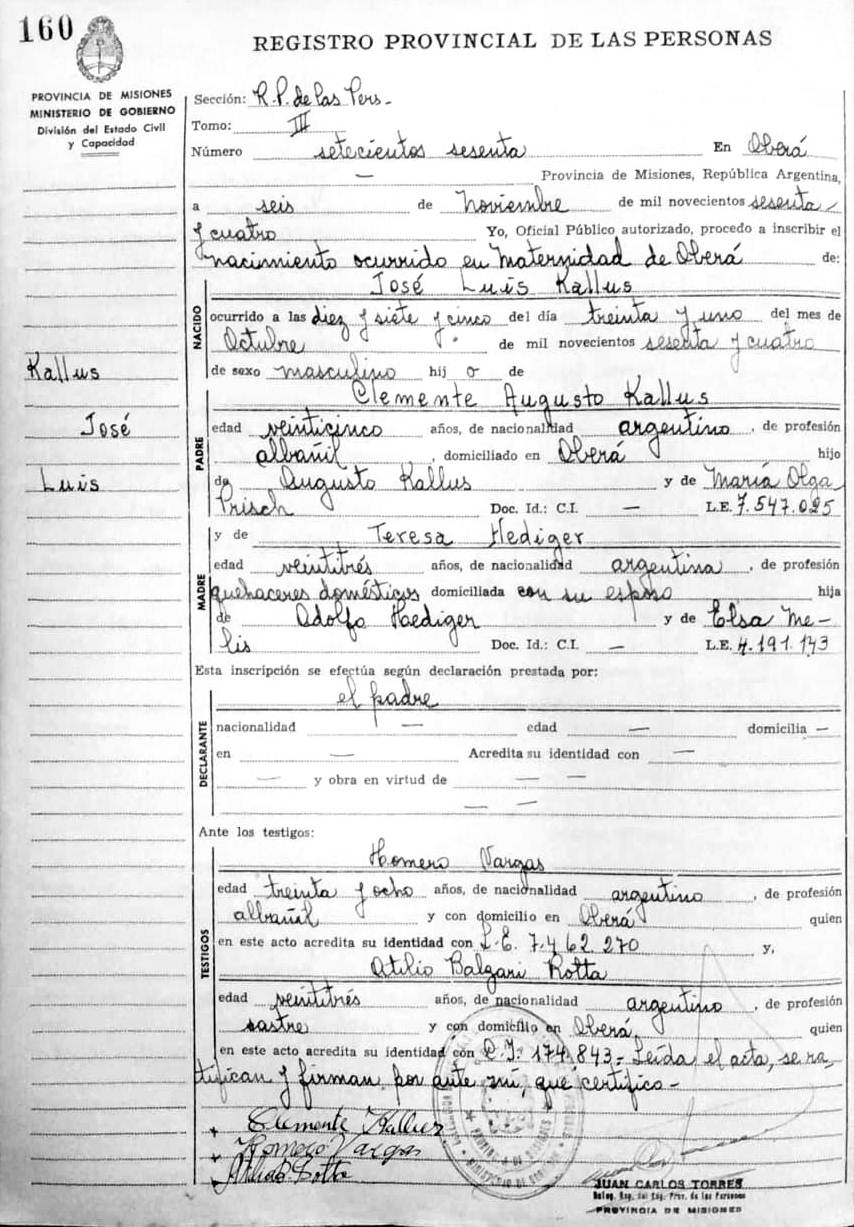 160
REGISTRO PROVINCIAL DE LAS PERSONAS
PROVINCIA DE MISIONES
MINISTERIO DE GOBIERNO
División del Estado Civil
y Capacidad
Sección: R.P. de las Pers.-
Tomo: III
Número setecientos sesenta En Oberá
— Provincia de Misiones, República Argentina,
a seis de Noviembre de mil novecientos sesenta
y cuatro Yo, Oficial Público autorizado, procedo a inscribir el
nacimiento ocurrido en Maternidad de Oberá de:
NACIDO
José Luis Kallus
ocurrido a las diez y siete y cinco del día treinta y uno del mes de
Octubre de mil novecientos sesenta y cuatro
de sexo masculino hij o de
Kallus
José
Luis
PADRE
Clemente Augusto Kallus
edad veinticinco años, de nacionalidad argentino, de profesión
albañil, domiciliado en Oberá hijo
de Augusto Kallus y de María Olga
Prisch Doc. Id.: C.I. — L.E. 7.547.025
MADRE
y de Teresa Hediger
edad veintitrés años, de nacionalidad argentina, de profesión
quehaceres domésticos domiciliada con su esposo hija
de Adolfo Hediger y de Elsa Me-
lis Doc. Id.: C.I. — L.E. 4.191.143
Esta inscripción se efectúa según declaración prestada por:
DECLARANTE
el padre
nacionalidad — edad — domicilia —
en — Acredita su identidad con —
— y obra en virtud de — —
— —
Ante los testigos:
TESTIGOS
Homero Vargas
edad treinta y ocho años, de nacionalidad argentino, de profesión
albañil y con domicilio en Oberá quien
en este acto acredita su identidad con L.E. 7.462.270 y,
Atilio Balzari Rotta
edad veintitrés años, de nacionalidad argentino, de profesión
sastre y con domicilio en Oberá, quien
en este acto acredita su identidad con C.I. 174.843.- Leída el acta, se ra-
tifican y firman por ante mí, que certifico-
Clemente Kallus
Homero Vargas
Atilio B. Rotta
JUAN CARLOS TORRES
Deleg. Reg. del Reg. Prov. de las Personas
PROVINCIA DE MISIONES